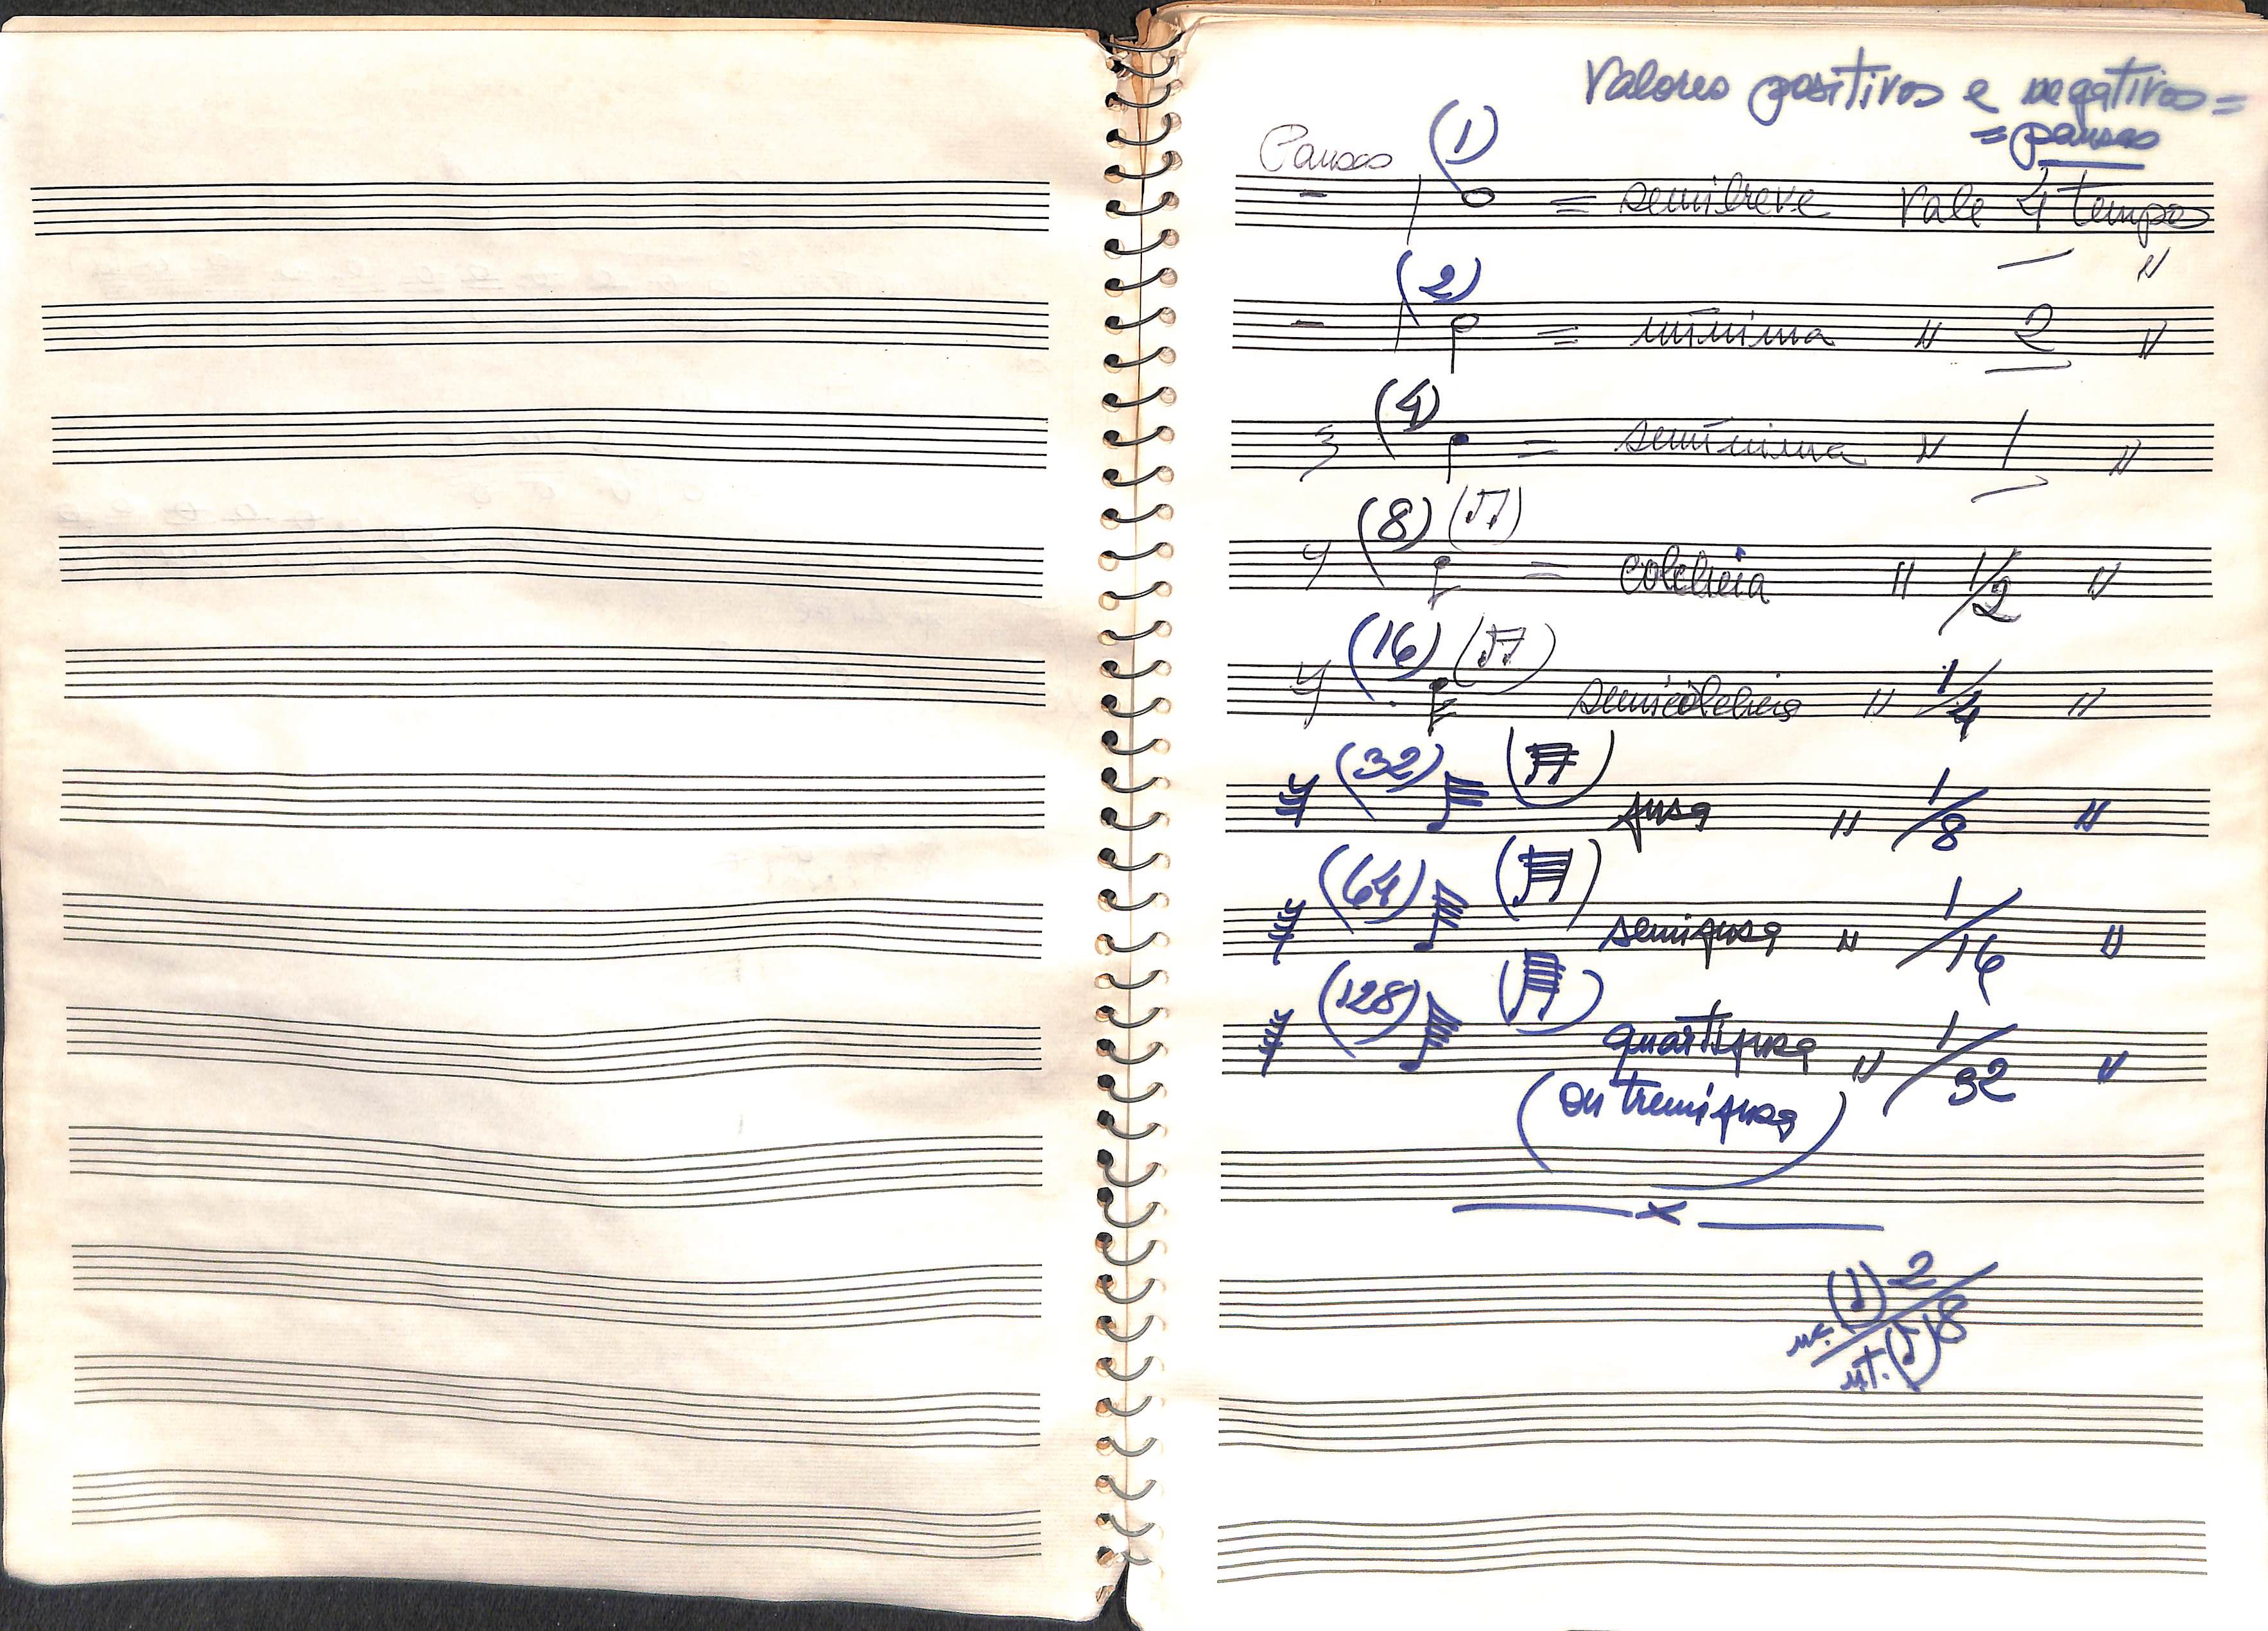 Valores positivos e negativos =
= pausas
Pausas (1)
= semibreve Vale 4 tempos
"
(2)
= mínima " 2 "
(4)
= semínima " 1 "
(8) (♫)
= colcheia " 1/2 "
(16) (♬)
semicolcheia " 1/4 "
(32)
fusa " 1/8 "
(64)
semifusa " 1/16 "
(128)
quartifusa " 1/32 "
(ou tremifusa)
x
(♩) 2
ut. (♪) 8